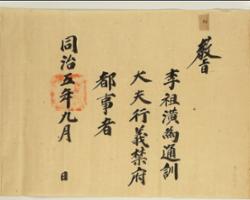 敎旨
李祖潢爲通訓
大夫行義禁府
都事者
同治五年九月 日